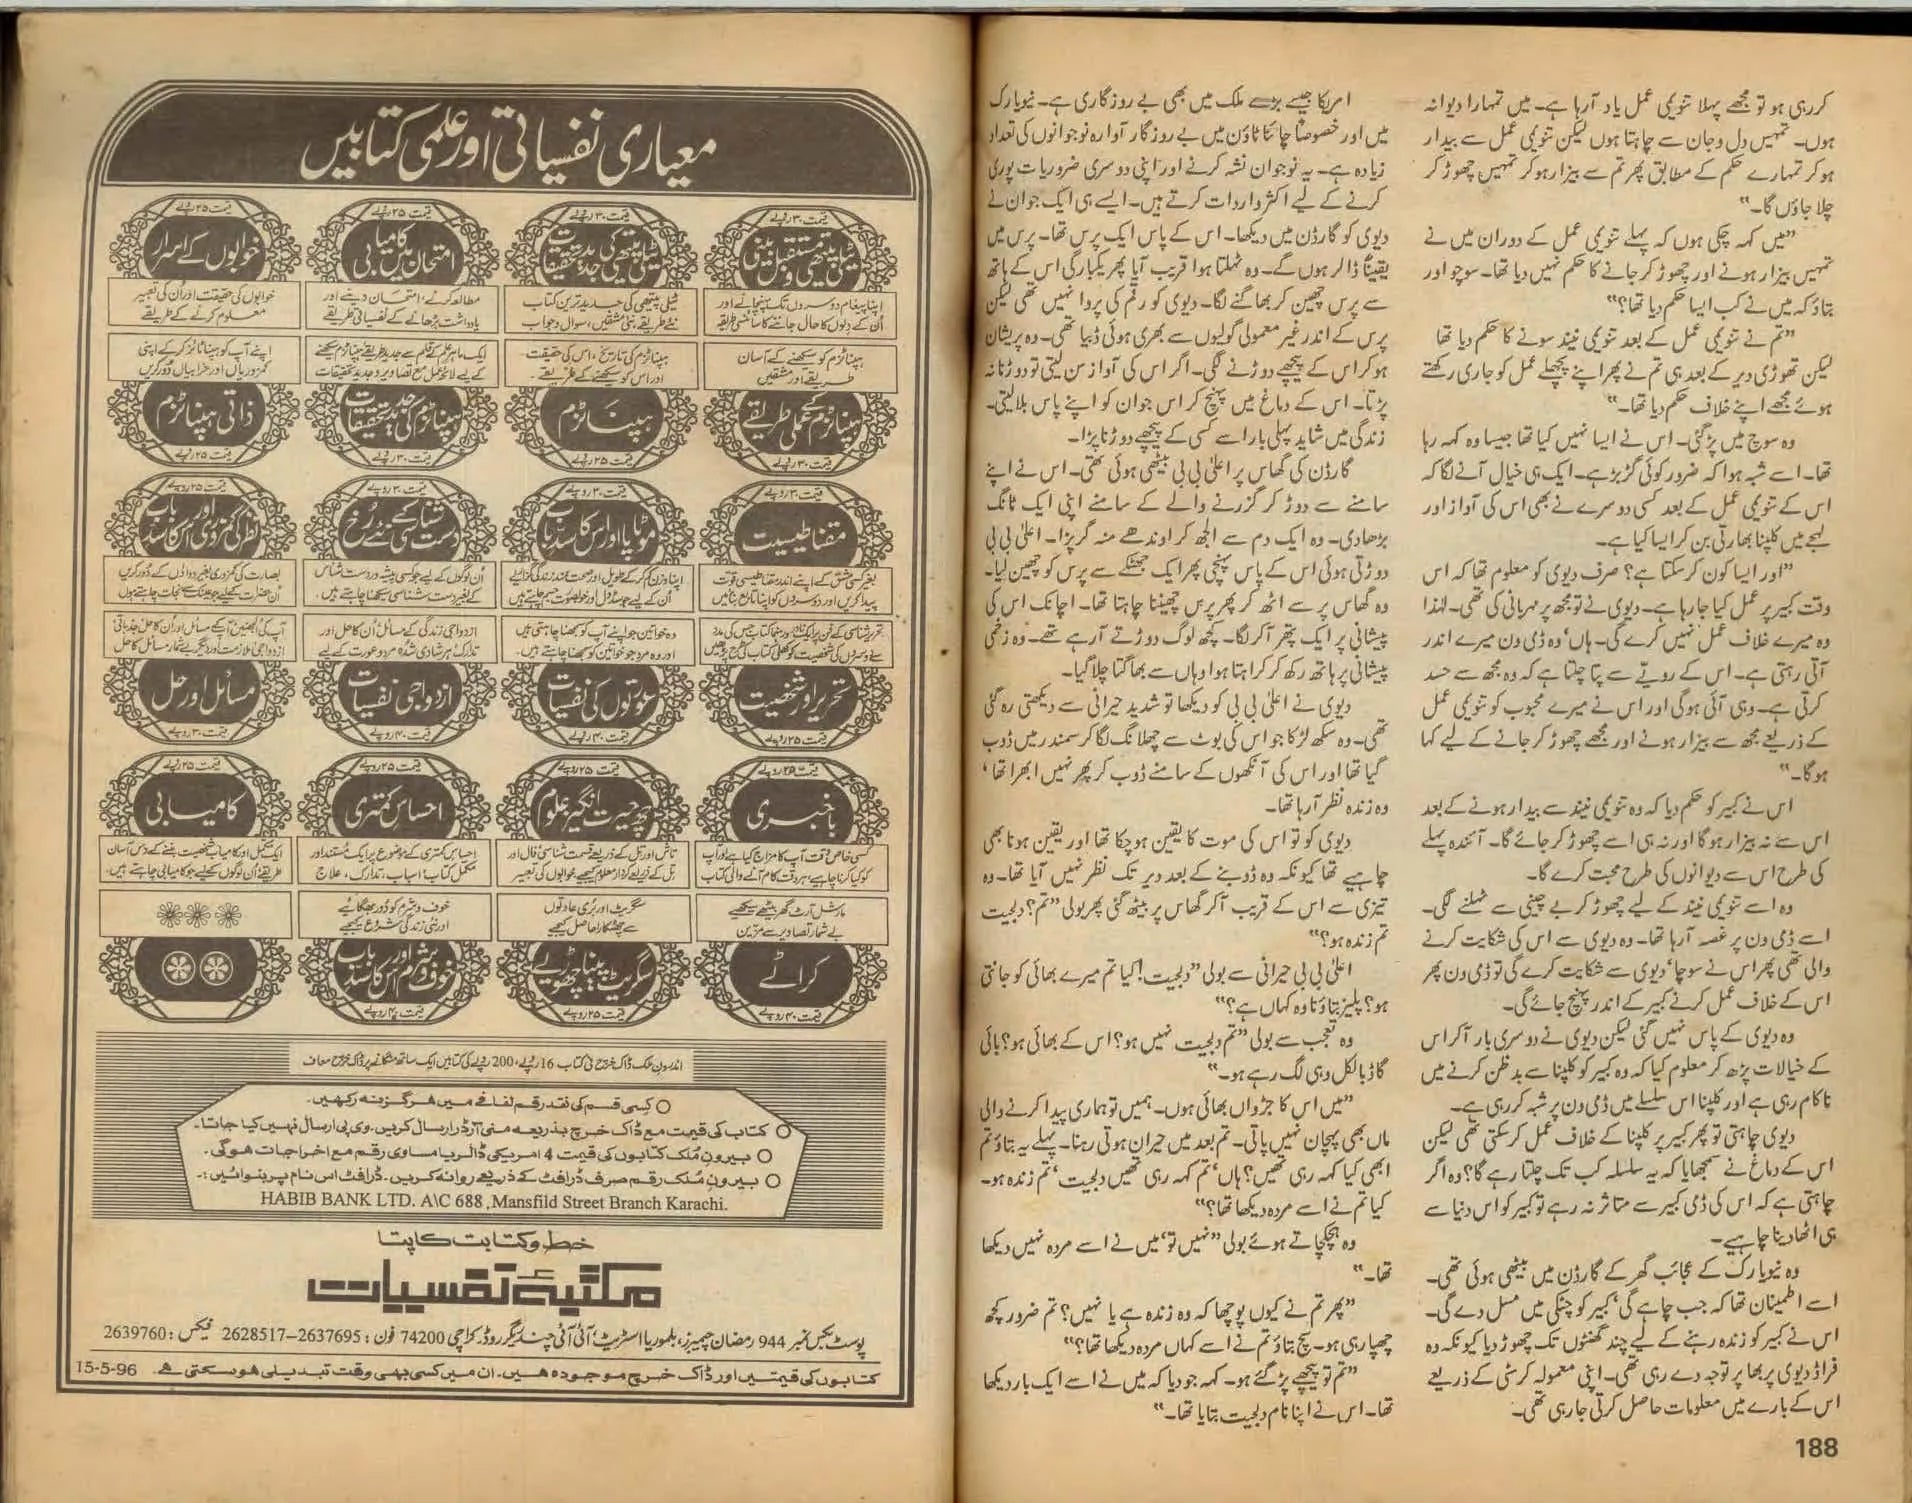 کر رہی ہو تو مجھے پہلا تنویمی عمل یاد آرہا ہے۔ میں تمہارا دیوانہ
ہوں۔ تمہیں دل و جان سے چاہتا ہوں لیکن تنویمی عمل سے بیدار
ہو کر تمہارے حکم کے مطابق پھر تم سے بیزار ہو کر تمہیں چھوڑ کر
چلا جاؤں گا۔"
"میں کہہ چکی ہوں کہ پہلے تنویمی عمل کے دوران میں نے
تمہیں بیزار ہونے اور چھوڑ کر جانے کا حکم نہیں دیا تھا۔ سوچو اور
بتاؤ کہ میں نے کب ایسا حکم دیا تھا؟"
"تم نے تنویمی عمل کے بعد تنویمی نیند سونے کا حکم دیا تھا
لیکن تھوڑی دیر کے بعد ہی تم نے پھر اپنے پچھلے عمل کو جاری رکھتے
ہوئے مجھے اپنے خلاف حکم دیا تھا۔"
وہ سوچ میں پڑ گئی۔ اس نے ایسا نہیں کیا تھا جیسا وہ کہہ رہا
تھا۔ اسے شبہ ہوا کہ ضرور کوئی گڑبڑ ہے۔ ایک ہی خیال آنے لگا کہ
اس کے تنویمی عمل کے بعد کسی دوسرے نے بھی اس کی آواز اور
لہجے میں کلپنا بھارتی بن کر ایسا کیا ہے۔
"اور ایسا کون کر سکتا ہے؟ صرف دیوی کو معلوم تھا کہ اس
وقت کبیر پر عمل کیا جا رہا ہے۔ دیوی نے تو مجھ پر مہربانی کی تھی۔ لہٰذا
وہ میرے خلاف عمل نہیں کرے گی۔ ہاں' وہ ڈمی ون میرے اندر
آتی رہتی ہے۔ اس کے رویے سے پتا چلتا ہے کہ وہ مجھ سے حسد
کرتی ہے۔ وہی آئی ہوگی اور اس نے میرے محبوب کو تنویمی عمل
کے ذریعے مجھ سے بیزار ہونے اور مجھے چھوڑ کر جانے کے لیے کہا
ہوگا۔"
اس نے کبیر کو حکم دیا کہ وہ تنویمی نیند سے بیدار ہونے کے بعد
اس سے نہ بیزار ہوگا اور نہ ہی اسے چھوڑ کر جائے گا۔ آئندہ پہلے
کی طرح اس سے دیوانوں کی طرح محبت کرے گا۔
وہ اسے تنویمی نیند کے لیے چھوڑ کر بے چینی سے ٹہلنے لگی۔
اسے ڈمی ون پر غصہ آرہا تھا۔ وہ دیوی سے اس کی شکایت کرنے
والی تھی پھر اس نے سوچا' دیوی سے شکایت کرے گی تو ڈمی ون پھر
اس کے خلاف عمل کرنے کبیر کے اندر پہنچ جائے گی۔
وہ دیوی کے پاس نہیں گئی لیکن دیوی نے دوسری بار آکر اس
کے خیالات پڑھ کر معلوم کیا کہ وہ کبیر کو کلپنا سے بدظن کرنے میں
ناکام رہی ہے اور کلپنا اس سلسلے میں ڈمی ون پر شبہ کر رہی ہے۔
دیوی چاہتی تو پھر کبیر پر کلپنا کے خلاف عمل کر سکتی تھی لیکن
اس کے دماغ نے سمجھایا کہ یہ سلسلہ کب تک چلتا رہے گا؟ وہ اگر
چاہتی ہے کہ اس کی ڈمی کبیر سے متاثر نہ رہے تو کبیر کو اس دنیا سے
ہی اٹھا دینا چاہیے۔
وہ نیویارک کے عجائب گھر کے گارڈن میں بیٹھی ہوئی تھی۔
اسے اطمینان تھا کہ جب چاہے گی' کبیر کو چٹکی میں مسل دے گی۔
اس نے کبیر کو زندہ رہنے کے لیے چند گھنٹوں تک چھوڑ دیا کیونکہ وہ
فراڈ دیوی پر بھا پر توجہ دے رہی تھی۔ اپنی معمولہ کرسٹی کے ذریعے
اس کے بارے میں معلومات حاصل کرتی جا رہی تھی۔
188
امریکا جیسے بڑے ملک میں بھی بے روزگاری ہے۔ نیویارک
میں اور خصوصاً چائنا ٹاؤن میں بے روزگار آوارہ نوجوانوں کی تعداد
زیادہ ہے۔ یہ نوجوان نشہ کرنے اور اپنی دوسری ضروریات پوری
کرنے کے لیے اکثر واردات کرتے ہیں۔ ایسے ہی ایک جوان نے
دیوی کو گارڈن میں دیکھا۔ اس کے پاس ایک پرس تھا۔ پرس میں
یقیناً ڈالر ہوں گے۔ وہ ٹہلتا ہوا قریب آیا پھر یکبارگی اس کے ہاتھ
سے پرس چھین کر بھاگنے لگا۔ دیوی کو رقم کی پروا نہیں تھی لیکن
پرس کے اندر غیر معمولی گولیوں سے بھری ہوئی ڈبیا تھی۔ وہ پریشان
ہو کر اس کے پیچھے دوڑنے لگی۔ اگر اس کی آواز سن لیتی تو دوڑنا نہ
پڑتا۔ اس کے دماغ میں پہنچ کر اس جوان کو اپنے پاس بلا لیتی۔
زندگی میں شاید پہلی بار اسے کسی کے پیچھے دوڑنا پڑا۔
گارڈن کی گھاس پر اعلیٰ بی بی بیٹھی ہوئی تھی۔ اس نے اپنے
سامنے سے دوڑ کر گزرنے والے کے سامنے اپنی ایک ٹانگ
بڑھا دی۔ وہ ایک دم سے الجھ کر اوندھے منہ گر پڑا۔ اعلیٰ بی بی
دوڑتی ہوئی اس کے پاس پہنچی پھر ایک جھٹکے سے پرس کو چھین لیا۔
وہ گھاس پر سے اٹھ کر پھر پرس چھیننا چاہتا تھا۔ اچانک اس کی
پیشانی پر ایک پتھر آکر لگا۔ کچھ لوگ دوڑتے آرہے تھے۔ وہ زخمی
پیشانی پر ہاتھ رکھ کر کراہتا ہوا وہاں سے بھاگتا چلا گیا۔
دیوی نے اعلیٰ بی بی کو دیکھا تو شدید حیرانی سے دیکھتی رہ گئی
تھی۔ وہ سکھ لڑکا جو اس کی بوٹ سے چھلانگ لگا کر سمندر میں ڈوب
گیا تھا اور اس کی آنکھوں کے سامنے ڈوب کر پھر نہیں ابھرا تھا'
وہ زندہ نظر آرہا تھا۔
دیوی کو تو اس کی موت کا یقین ہو چکا تھا اور یقین ہونا بھی
چاہیے تھا کیونکہ وہ ڈوبنے کے بعد دیر تک نظر نہیں آیا تھا۔ وہ
تیزی سے اس کے قریب آکر گھاس پر بیٹھ گئی پھر بولی "تم؟ دلجیت
تم زندہ ہو؟"
اعلیٰ بی بی حیرانی سے بولی "دلجیت! کیا تم میرے بھائی کو جانتی
ہو؟ پلیز بتاؤ نا وہ کہاں ہے؟"
وہ تعجب سے بولی "تم دلجیت نہیں ہو؟ اس کے بھائی ہو؟ بائی
گاڈ بالکل وہی لگ رہے ہو۔"
"میں اس کا جڑواں بھائی ہوں۔ ہمیں تو ہماری پیدا کرنے والی
ماں بھی پہچان نہیں پاتی۔ تم بعد میں حیران ہوتی رہنا۔ پہلے یہ بتاؤ تم
ابھی کیا کہہ رہی تھیں؟ ہاں' تم کہہ رہی تھیں دلجیت' تم زندہ ہو۔
کیا تم نے اسے مردہ دیکھا تھا؟"
وہ ہچکچاتے ہوئے بولی "نہیں تو' میں نے اسے مردہ نہیں دیکھا
تھا۔"
"پھر تم نے کیوں پوچھا کہ وہ زندہ ہے یا نہیں؟ تم ضرور کچھ
چھپا رہی ہو۔ سچ بتاؤ تم نے اسے کہاں مردہ دیکھا تھا؟"
"تم تو پیچھے پڑ گئے ہو۔ کہہ جو دیا کہ میں نے اسے ایک بار دیکھا
تھا۔ اس نے اپنا نام دلجیت بتایا تھا۔"
معیاری نفسیاتی اور علمی کتابیں
قیمت ۳۰ روپے
ٹیلی پیتھی و مستقبل بینی
اپنا پیغام دوسروں تک پہنچانے اور
اُن کے دلوں کا حال جاننے کا سائنسی طریقہ
قیمت ۳۰ روپے
ٹیلی پیتھی کی جدید تحقیقات
ٹیلی پیتھی کی جدید ترین کتاب
نئے طریقے نئی مشقیں، سوال و جواب
قیمت ۲۵ روپے
امتحان میں کامیابی
مطالعہ کرنے، امتحان دینے اور
یادداشت بڑھانے کے نفسیاتی طریقے
قیمت ۲۵ روپے
خوابوں کے اسرار
خوابوں کی حقیقت اور اُن کی تعبیر
معلوم کرنے کے طریقے
ہپناٹزم کو سیکھنے کے آسان
طریقے اور مشقیں
ہپناٹزم کے عملی طریقے
قیمت ۳۰ روپے
ہپناٹزم کی تاریخ، اس کی حقیقت
اور اس کو سیکھنے کے طریقے۔
ہپناٹزم
قیمت ۲۵ روپے
ایک ماہر علم کے قلم سے جدید طریقے ہپناٹزم سیکھنے
کے لیے لائحہ عمل مع تصاویر و جدید تحقیقات
ہپناٹزم کی جدید تحقیقات
قیمت ۳۰ روپے
اپنے آپ کو ہپناٹائز کر کے اپنی
کمزوریاں اور خرابیاں دُور کریں
ذاتی ہپناٹزم
قیمت ۲۵ روپے
قیمت ۳۰ روپے
مقناطیسیت
بغیر کسی مشق کے اپنے اندر مقناطیسی قوت
پیدا کریں اور دوسروں کو اپنا تابع بنائیں
قیمت ۲۰ روپے
موٹاپا اور اس کا سدباب
اپنا وزن کم کر کے طویل اور صحت مند زندگی گزاریے
اُن کے لیے جو سڈول اور خوبصورت جسم چاہتے ہیں
قیمت ۲۰ روپے
دست شناسی کے نئے رُخ
اُن لوگوں کے لیے جو کسی پیشہ ور دست شناس
کے بغیر دست شناسی سیکھنا چاہتے ہیں۔
قیمت ۲۵ روپے
نظر کی کمزوری اور اس کا سدباب
بصارت کی کمزوری بغیر دواؤں کے دُور کریں
اُن حضرات کے لیے جو عینک سے نجات چاہتے ہوں
تحریر اور شخصیت
قیمت ۲۵ روپے
وہ خواتین جو اپنے آپ کو سمجھنا چاہتی ہیں
اور وہ مرد جو خواتین کو سمجھنا چاہتے ہیں۔
عورتوں کی نفسیات
قیمت ۴۰ روپے
ازدواجی زندگی کے مسائل اُن کا حل اور
تدارک، ہر شادی شدہ مرد و عورت کے لیے
ازدواجی نفسیات
قیمت ۴۰ روپے
مسائل اور حل
قیمت ۳۰ روپے
قیمت ۲۵ روپے
باخبری
کسی خاص وقت آپ کا مزاج کیا ہے اور آپ
کو کیا کرنا چاہیے، ہر وقت کام آنے والی کتاب
قیمت ۲۵ روپے
چھ حیرت انگیز علوم
قیمت ۲۵ روپے
احساس کمتری
احساس کمتری کے موضوع پر ایک مستند اور
مکمل کتاب: اسباب، تدارک، علاج
قیمت ۲۵ روپے
کامیابی
ایک مکمل اور کامیاب شخصیت بننے کے دس آسان
طریقے اُن لوگوں کے لیے جو کامیابی چاہتے ہیں۔
مارشل آرٹ گھر بیٹھے سیکھیے
بے شمار تصاویر سے مزین
کراٹے
قیمت ۴۰ روپے
سگریٹ اور بُری عادتوں
سے چھٹکارا حاصل کیجیے
سگریٹ پینا چھوڑیے
قیمت ۲۵ روپے
خوف و شرم کو دُور بھگائیے
اور نئی زندگی شروع کیجیے
خوف و شرم اور اس کا سدباب
قیمت ۴۰ روپے
اندرون ملک ڈاک خرچ فی کتاب 16 روپے، 200 روپے کی کتابیں ایک ساتھ منگانے پر ڈاک خرچ معاف
کسی قسم کی نقد رقم لفافے میں ہرگز نہ رکھیں۔
کتاب کی قیمت مع ڈاک خرچ بذریعہ منی آرڈر ارسال کریں۔ وی پی ارسال نہیں کیا جاتا۔
بیرونِ ملک کتابوں کی قیمت 4 امریکی ڈالر یا مساوی رقم مع اخراجات ہوگی۔
بیرونِ مُلک رقم صرف ڈرافٹ کے ذریعے روانہ کریں۔ ڈرافٹ اس نام پر بنوائیں:۔
HABIB BANK LTD. A\C 688, Mansfild Street Branch Karachi.
خط و کتابت کا پتا
مکتبۂ نفسیات
پوسٹ بکس نمبر 944 رمضان چیمبرز، بلموریا اسٹریٹ، آئی آئی چندریگر روڈ، کراچی 74200 فون: 2637695–2628517 فیکس: 2639760
کتابوں کی قیمتیں اور ڈاک خرچ موجودہ ہیں۔ ان میں کسی بھی وقت تبدیلی ہو سکتی ہے۔ 15-5-96